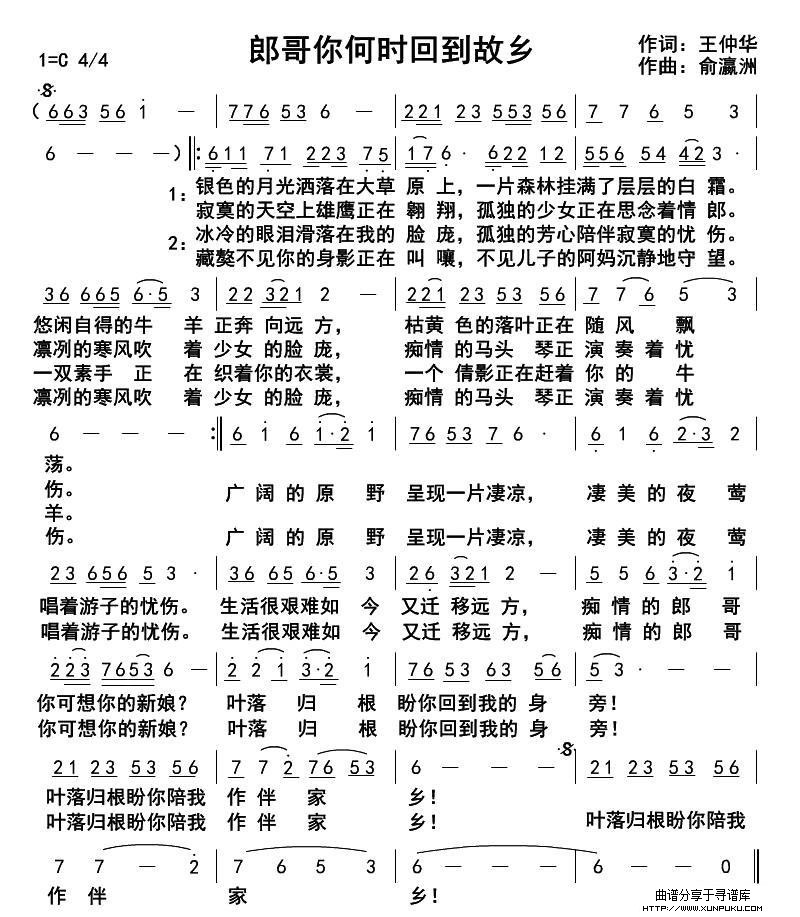 郎哥你何时回到故乡
1=C 4/4
作词：王仲华
作曲：俞瀛洲
(663 561 — | 776 536 — | 221 23 553 56 | 7 7 6 5 3 |
6 — — —)‖: 611 71 223 75 | 176· 622 12 | 556 54 423 |
1：银色的月光洒落在大草 原 上，一片森林挂满了层层的白 霜。
寂寞的天空上雄鹰正在 翱 翔，孤独的少女正在思念着情 郎。
2：冰冷的眼泪滑落在我的 脸 庞，孤独的芳心陪伴寂寞的忧 伤。
藏獒不见你的身影正在 叫 嚷，不见儿子的阿妈沉静地守 望。
36 665 6·5 3 | 22 321 2 — | 221 23 53 56 | 7 76 5 3 |
悠闲自得的牛 羊 正奔 向远 方， 枯黄 色的落叶正在 随 风 飘
凛冽的寒风吹 着 少女 的脸 庞， 痴情 的马头 琴正 演 奏着 忧
一双素手 正 在 织着你的衣裳， 一个 倩影正在赶着 你 的 牛
凛冽的寒风吹 着 少女 的脸 庞， 痴情 的马头 琴正 演 奏着 忧
6 — — — :‖ 6 1 6 1·2 1 | 76 53 7 6 · | 6 1 6 2·3 2 |
荡。
伤。 广 阔 的 原 野 呈现一片凄凉， 凄 美 的 夜 莺
羊。
伤。 广 阔 的 原 野 呈现一片凄凉， 凄 美 的 夜 莺
23 656 5 3 · | 36 65 6·5 3 | 26 321 2 — | 5 5 6 3·2 1 |
唱着游子的忧伤。 生活很艰难如 今 又迁 移远 方， 痴 情 的 郎 哥
唱着游子的忧伤。 生活很艰难如 今 又迁 移远 方， 痴 情 的 郎 哥
223 7653 6 — | 2 2 1 3·2 1 | 76 53 63 56 | 53 · — — |
你可想你的新娘? 叶落 归 根 盼你回到我的 身 旁!
你可想你的新娘? 叶落 归 根 盼你回到我的 身 旁!
21 23 53 56 | 7 7 2 76 53 | 6 — — — | 21 23 53 56 |
叶落归根盼你陪我 作 伴 家 乡! 叶落归根盼你陪我
叶落归根盼你陪我 作 伴 家 乡!
7 7 — 2 | 7 6 5 3 | 6 — — — | 6 — — 0 ‖
作 伴 家 乡!
曲谱分享于寻谱库
HTTP://WWW.XUNPUKU.COM